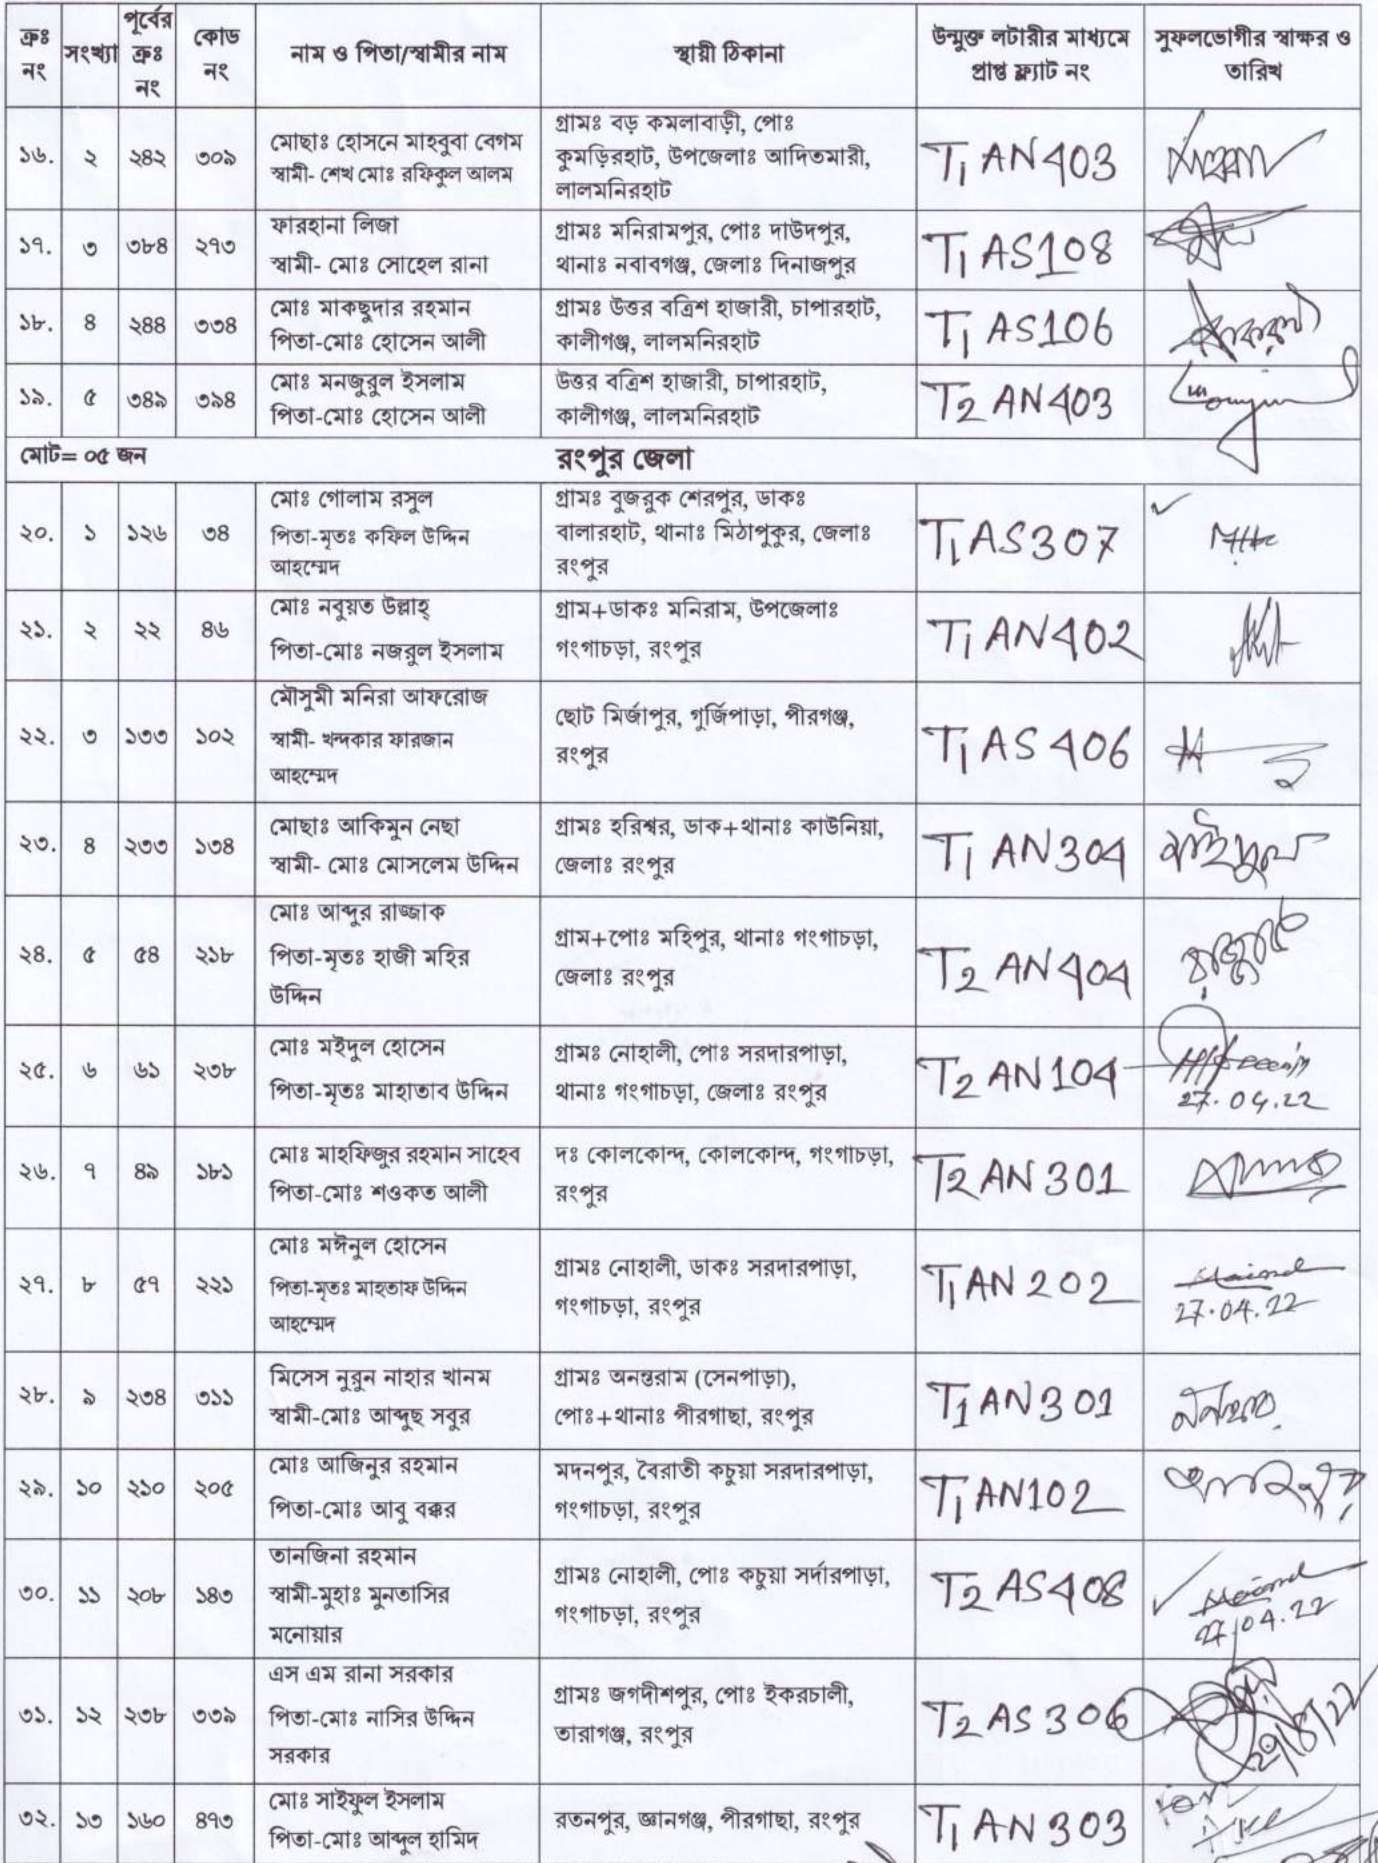 ক্রঃ নং | সংখ্যা | পূর্বের ক্রঃ নং | কোড নং | নাম ও পিতা/স্বামীর নাম | স্থায়ী ঠিকানা | উন্মুক্ত লটারীর মাধ্যমে প্রাপ্ত ফ্ল্যাট নং | সুফলভোগীর স্বাক্ষর ও তারিখ
১৬. | ২ | ২৪২ | ৩০৯ | মোছাঃ হোসনে মাহবুবা বেগম স্বামী- শেখ মোঃ রফিকুল আলম | গ্রামঃ বড় কমলাবাড়ী, পোঃ কুমড়িরহাট, উপজেলাঃ আদিতমারী, লালমনিরহাট | T1 AN 403
১৭. | ৩ | ৩৮৪ | ২৭৩ | ফারহানা লিজা স্বামী- মোঃ সোহেল রানা | গ্রামঃ মনিরামপুর, পোঃ দাউদপুর, থানাঃ নবাবগঞ্জ, জেলাঃ দিনাজপুর | T1 AS108
১৮. | ৪ | ২৪৪ | ৩৩৪ | মোঃ মাকছুদার রহমান পিতা-মোঃ হোসেন আলী | গ্রামঃ উত্তর বত্রিশ হাজারী, চাপারহাট, কালীগঞ্জ, লালমনিরহাট | T1 AS106
১৯. | ৫ | ৩৪৯ | ৩৯৪ | মোঃ মনজুরুল ইসলাম পিতা-মোঃ হোসেন আলী | উত্তর বত্রিশ হাজারী, চাপারহাট, কালীগঞ্জ, লালমনিরহাট | T2 AN 403
মোট= ০৫ জন | রংপুর জেলা
২০. | ১ | ১২৬ | ৩৪ | মোঃ গোলাম রসুল পিতা-মৃতঃ কফিল উদ্দিন আহম্মেদ | গ্রামঃ বুজরুক শেরপুর, ডাকঃ বালারহাট, থানাঃ মিঠাপুকুর, জেলাঃ রংপুর | T1 AS 307
২১. | ২ | ২২ | ৪৬ | মোঃ নবুয়ত উল্লাহ্ পিতা-মোঃ নজরুল ইসলাম | গ্রাম+ডাকঃ মনিরাম, উপজেলাঃ গংগাচড়া, রংপুর | T1 AN 402
২২. | ৩ | ১৩৩ | ১০২ | মৌসুমী মনিরা আফরোজ স্বামী- খন্দকার ফারজান আহম্মেদ | ছোট মির্জাপুর, গুর্জিপাড়া, পীরগঞ্জ, রংপুর | T1 AS 406
২৩. | ৪ | ২৩৩ | ১৩৪ | মোছাঃ আকিমুন নেছা স্বামী- মোঃ মোসলেম উদ্দিন | গ্রামঃ হরিশ্বর, ডাক+থানাঃ কাউনিয়া, জেলাঃ রংপুর | T1 AN 304
২৪. | ৫ | ৫৪ | ২১৮ | মোঃ আব্দুর রাজ্জাক পিতা-মৃতঃ হাজী মহির উদ্দিন | গ্রাম+পোঃ মহিপুর, থানাঃ গংগাচড়া, জেলাঃ রংপুর | T2 AN 404
২৫. | ৬ | ৬১ | ২৩৮ | মোঃ মইদুল হোসেন পিতা-মৃতঃ মাহাতাব উদ্দিন | গ্রামঃ নোহালী, পোঃ সরদারপাড়া, থানাঃ গংগাচড়া, জেলাঃ রংপুর | T2 AN 104 | 27.04.22
২৬. | ৭ | ৪৯ | ১৮১ | মোঃ মাহফিজুর রহমান সাহেব পিতা-মোঃ শওকত আলী | দঃ কোলকোন্দ, কোলকোন্দ, গংগাচড়া, রংপুর | T2 AN 301
২৭. | ৮ | ৫৭ | ২২১ | মোঃ মঈনুল হোসেন পিতা-মৃতঃ মাহতাফ উদ্দিন আহম্মেদ | গ্রামঃ নোহালী, ডাকঃ সরদারপাড়া, গংগাচড়া, রংপুর | T1 AN 202 | 27.04.22
২৮. | ৯ | ২৩৪ | ৩১১ | মিসেস নুরুন নাহার খানম স্বামী-মোঃ আব্দুছ সবুর | গ্রামঃ অনন্তরাম (সেনপাড়া), পোঃ+থানাঃ পীরগাছা, রংপুর | T1 AN 301
২৯. | ১০ | ২১০ | ২০৫ | মোঃ আজিনুর রহমান পিতা-মোঃ আবু বক্কর | মদনপুর, বৈরাতী কচুয়া সরদারপাড়া, গংগাচড়া, রংপুর | T1 AN102
৩০. | ১১ | ২০৮ | ১৪৩ | তানজিনা রহমান স্বামী-মুহাঃ মুনতাসির মনোয়ার | গ্রামঃ নোহালী, পোঃ কচুয়া সর্দারপাড়া, গংগাচড়া, রংপুর | T2 AS 408 | 27/04.22
৩১. | ১২ | ২৩৮ | ৩৩৯ | এস এম রানা সরকার পিতা-মোঃ নাসির উদ্দিন সরকার | গ্রামঃ জগদীশপুর, পোঃ ইকরচালী, তারাগঞ্জ, রংপুর | T2 AS 306
৩২. | ১৩ | ১৬০ | ৪৭৩ | মোঃ সাইফুল ইসলাম পিতা-মোঃ আব্দুল হামিদ | রতনপুর, জ্ঞানগঞ্জ, পীরগাছা, রংপুর | T1 AN 303